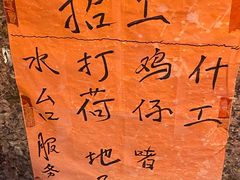 招工
水台服务
打荷地
鸡仔皆
什工